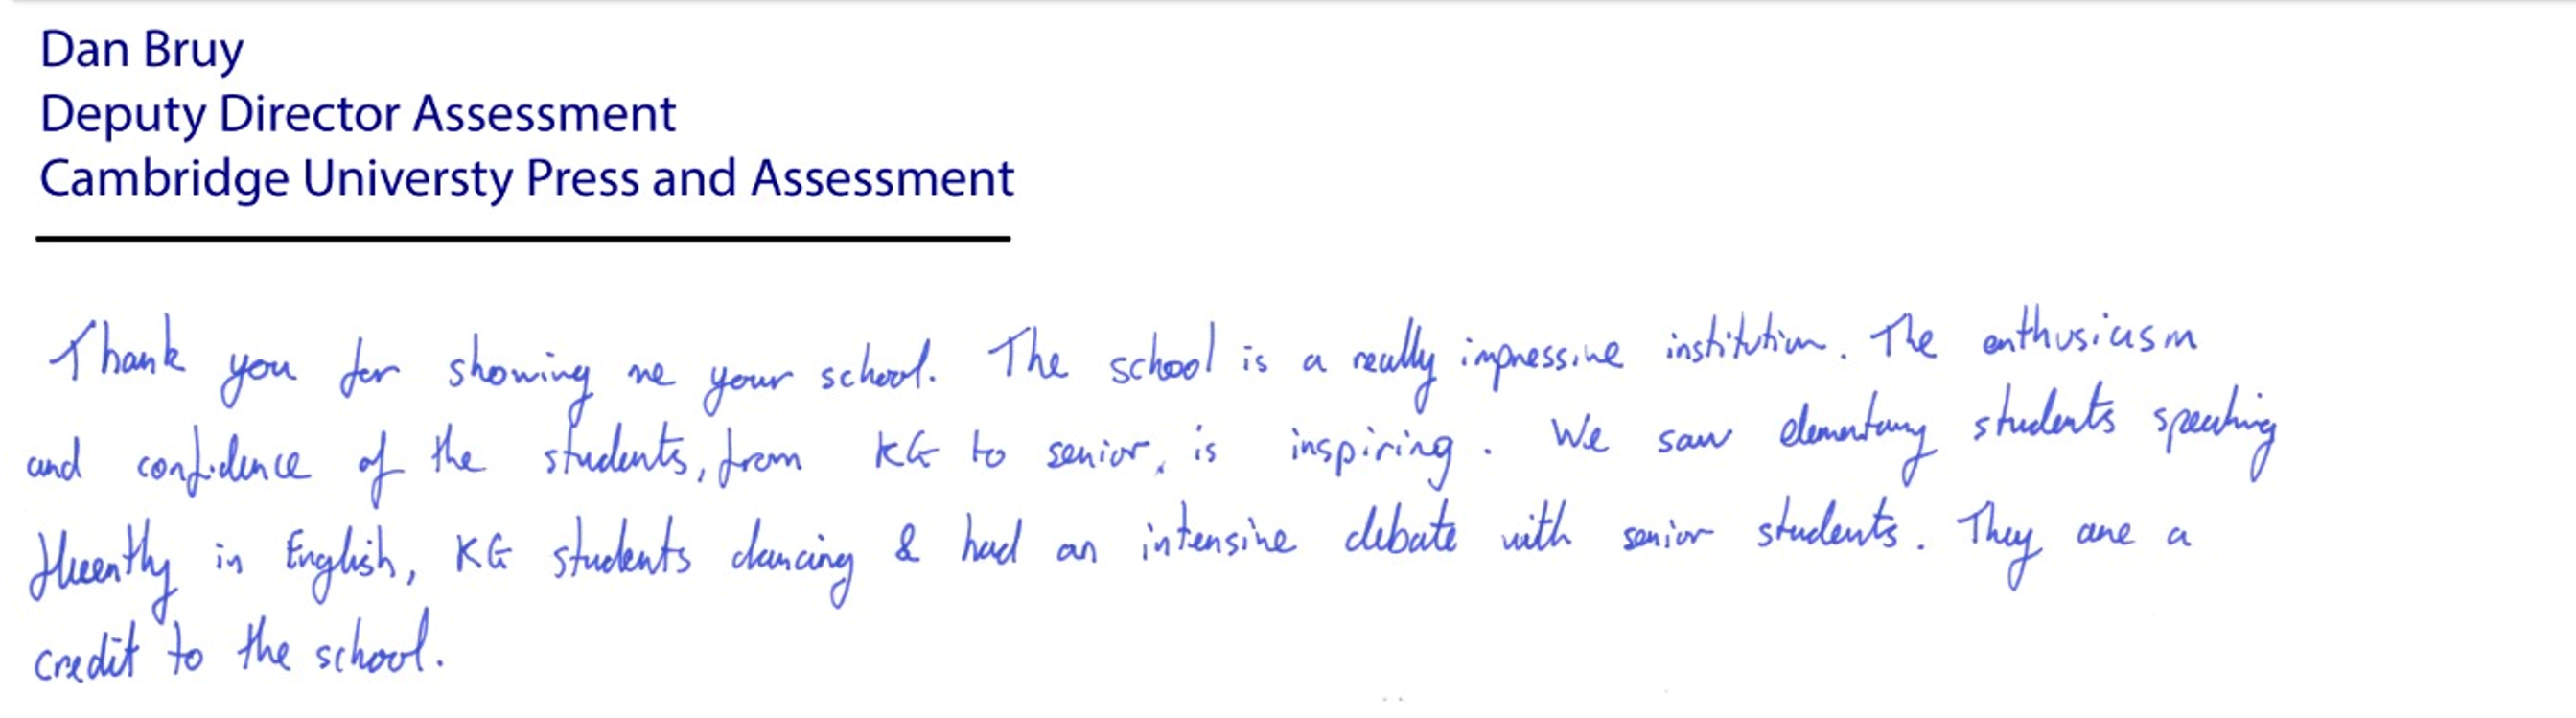 Dan Bruy
Deputy Director Assessment
Cambridge Universty Press and Assessment
Thank you for showing me your school. The school is a really impressive institution. The enthusiasm
and confidence of the students, from KG to senior, is inspiring. We saw elementary students speaking
fluently in English, KG students dancing & had an intensive debate with senior students. They are a
credit to the school.